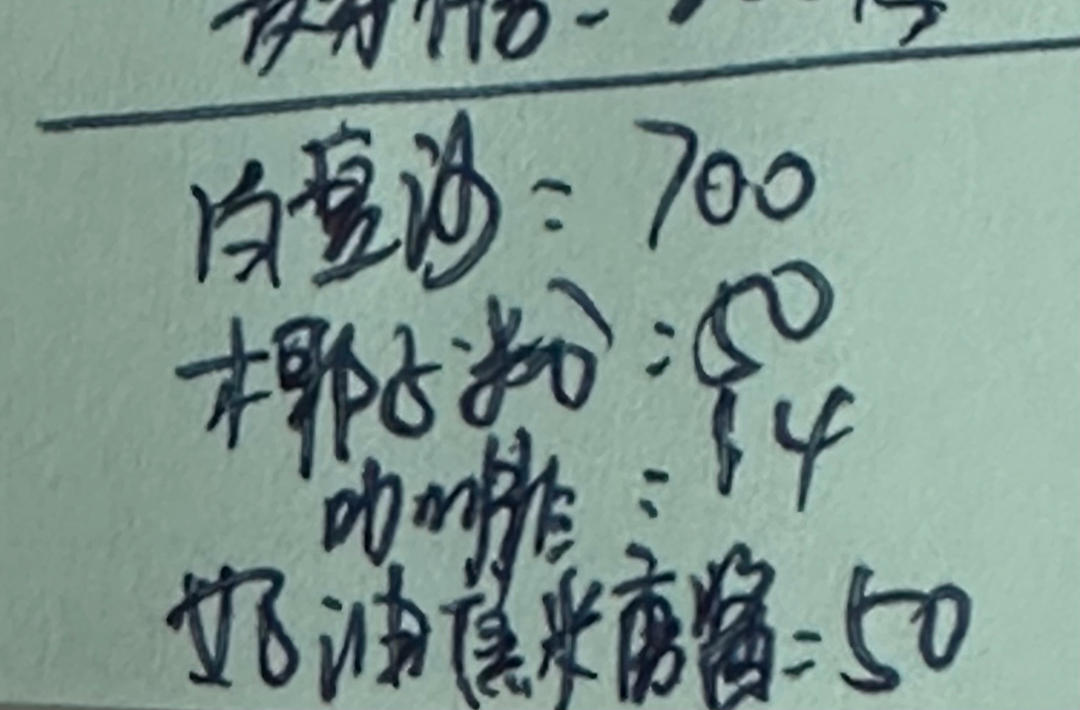 白豆沙: 700
椰子粉: 50
咖啡: 14
奶油焦糖醬: 50